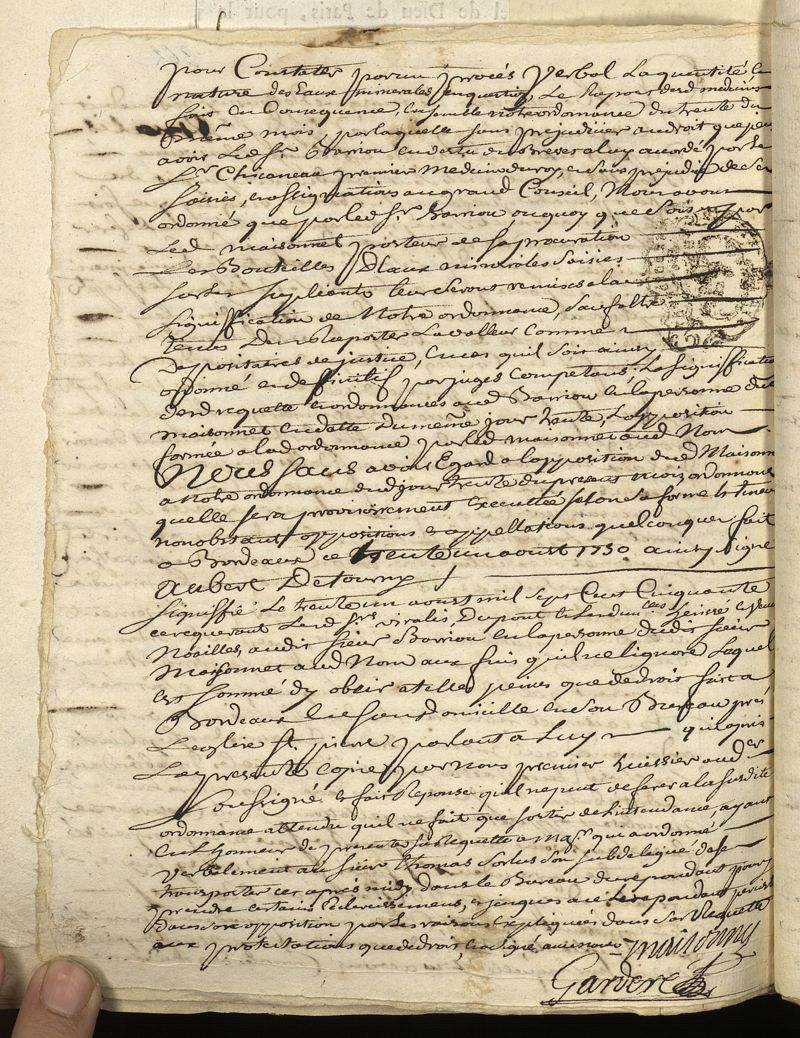 el de Dieu de Paris, pour
pour Constater par un procès verbal la quantité &
nature des Eaux minerales en question, Le Raport desd. medecins
fait en Consequence, ensemble notre ordonnance du trente du
meme mois, par laquelle sans prejudicier au droit que peu
avoir Led. Sr. Barriou en vertu du Brevet a luy accordé par Le
Sr. Chicaneau premier Medecin du roy, & sans prejudice de ses
saisies, & assignations au grand Conseil, Nous avons
ordonné que par led. Sr. Barriou ou quoy que ce soit par
Led. maisonnet porteur de sa procuration
Les Bouteilles D'eaux minerales saisies
sur les supliants leur seront remises a la
signiffication de Notre ordonnance, sauf a être
tenus D'en Raporter La valleur comme
Depositaires de justice, en cas qu'il soit ainsy
ordonné en deffinitif par juges Competans. La signiffication
desd. requette & ordonnances aud. Barriou en la personne dud.
maisonnet en datte du meme jour trente, L'opposition
formée a lad. ordonnance par led. maisonnet aud. Nom
Nous sans avoir Egard a l'opposition dud. Maisonnet
a Notre ordonnance dud. jour trente du present mois ordonnons
quelle sera provisoirement executtée selon sa forme & teneur
nonobstant oppositions & appellations quelconques fait
a Bordeaux ce trente un aoust 1750 ainsy signé
Aubert De tourny
Signiffié Le trente un aoust mil sept Cent Cinquante
ce requerant Lesd. Srs. Vivalés, Dupont & Les dunelles Seisse & veuve
Noailles, audit sieur Barriou en la personne dudit sieur
Maisonnet aud. Nom aux fins qu'il ne lignore Laquel
est sommé d'y obeir a telles peines que de droit fait a
Bordeaux en son domicille en son Bureau près
L'eglise St. pierre parlant a Luy qui a pris
La presente copie par Nous premier huissier aud.er
soussigné & fait Reponse qu'il ne peut deferer a la susditte
ordonnance attendu qu'il ne fait que sortir de L'intendance, ayant
eu L'honneur de presenter sa Requette a Mgr. qui a ordonné
Verbalement au sieur thomas son subdelegué de se
transporter cet après midy dans le Bureau du repondant pour y
prendre certains Eclercissemens, & jusques a ce Le repondant persiste
Dans son opposition par les raisons Expliquées dans sa Requette
aux protestations que de droit, & a signé
maisonnet
Gardere